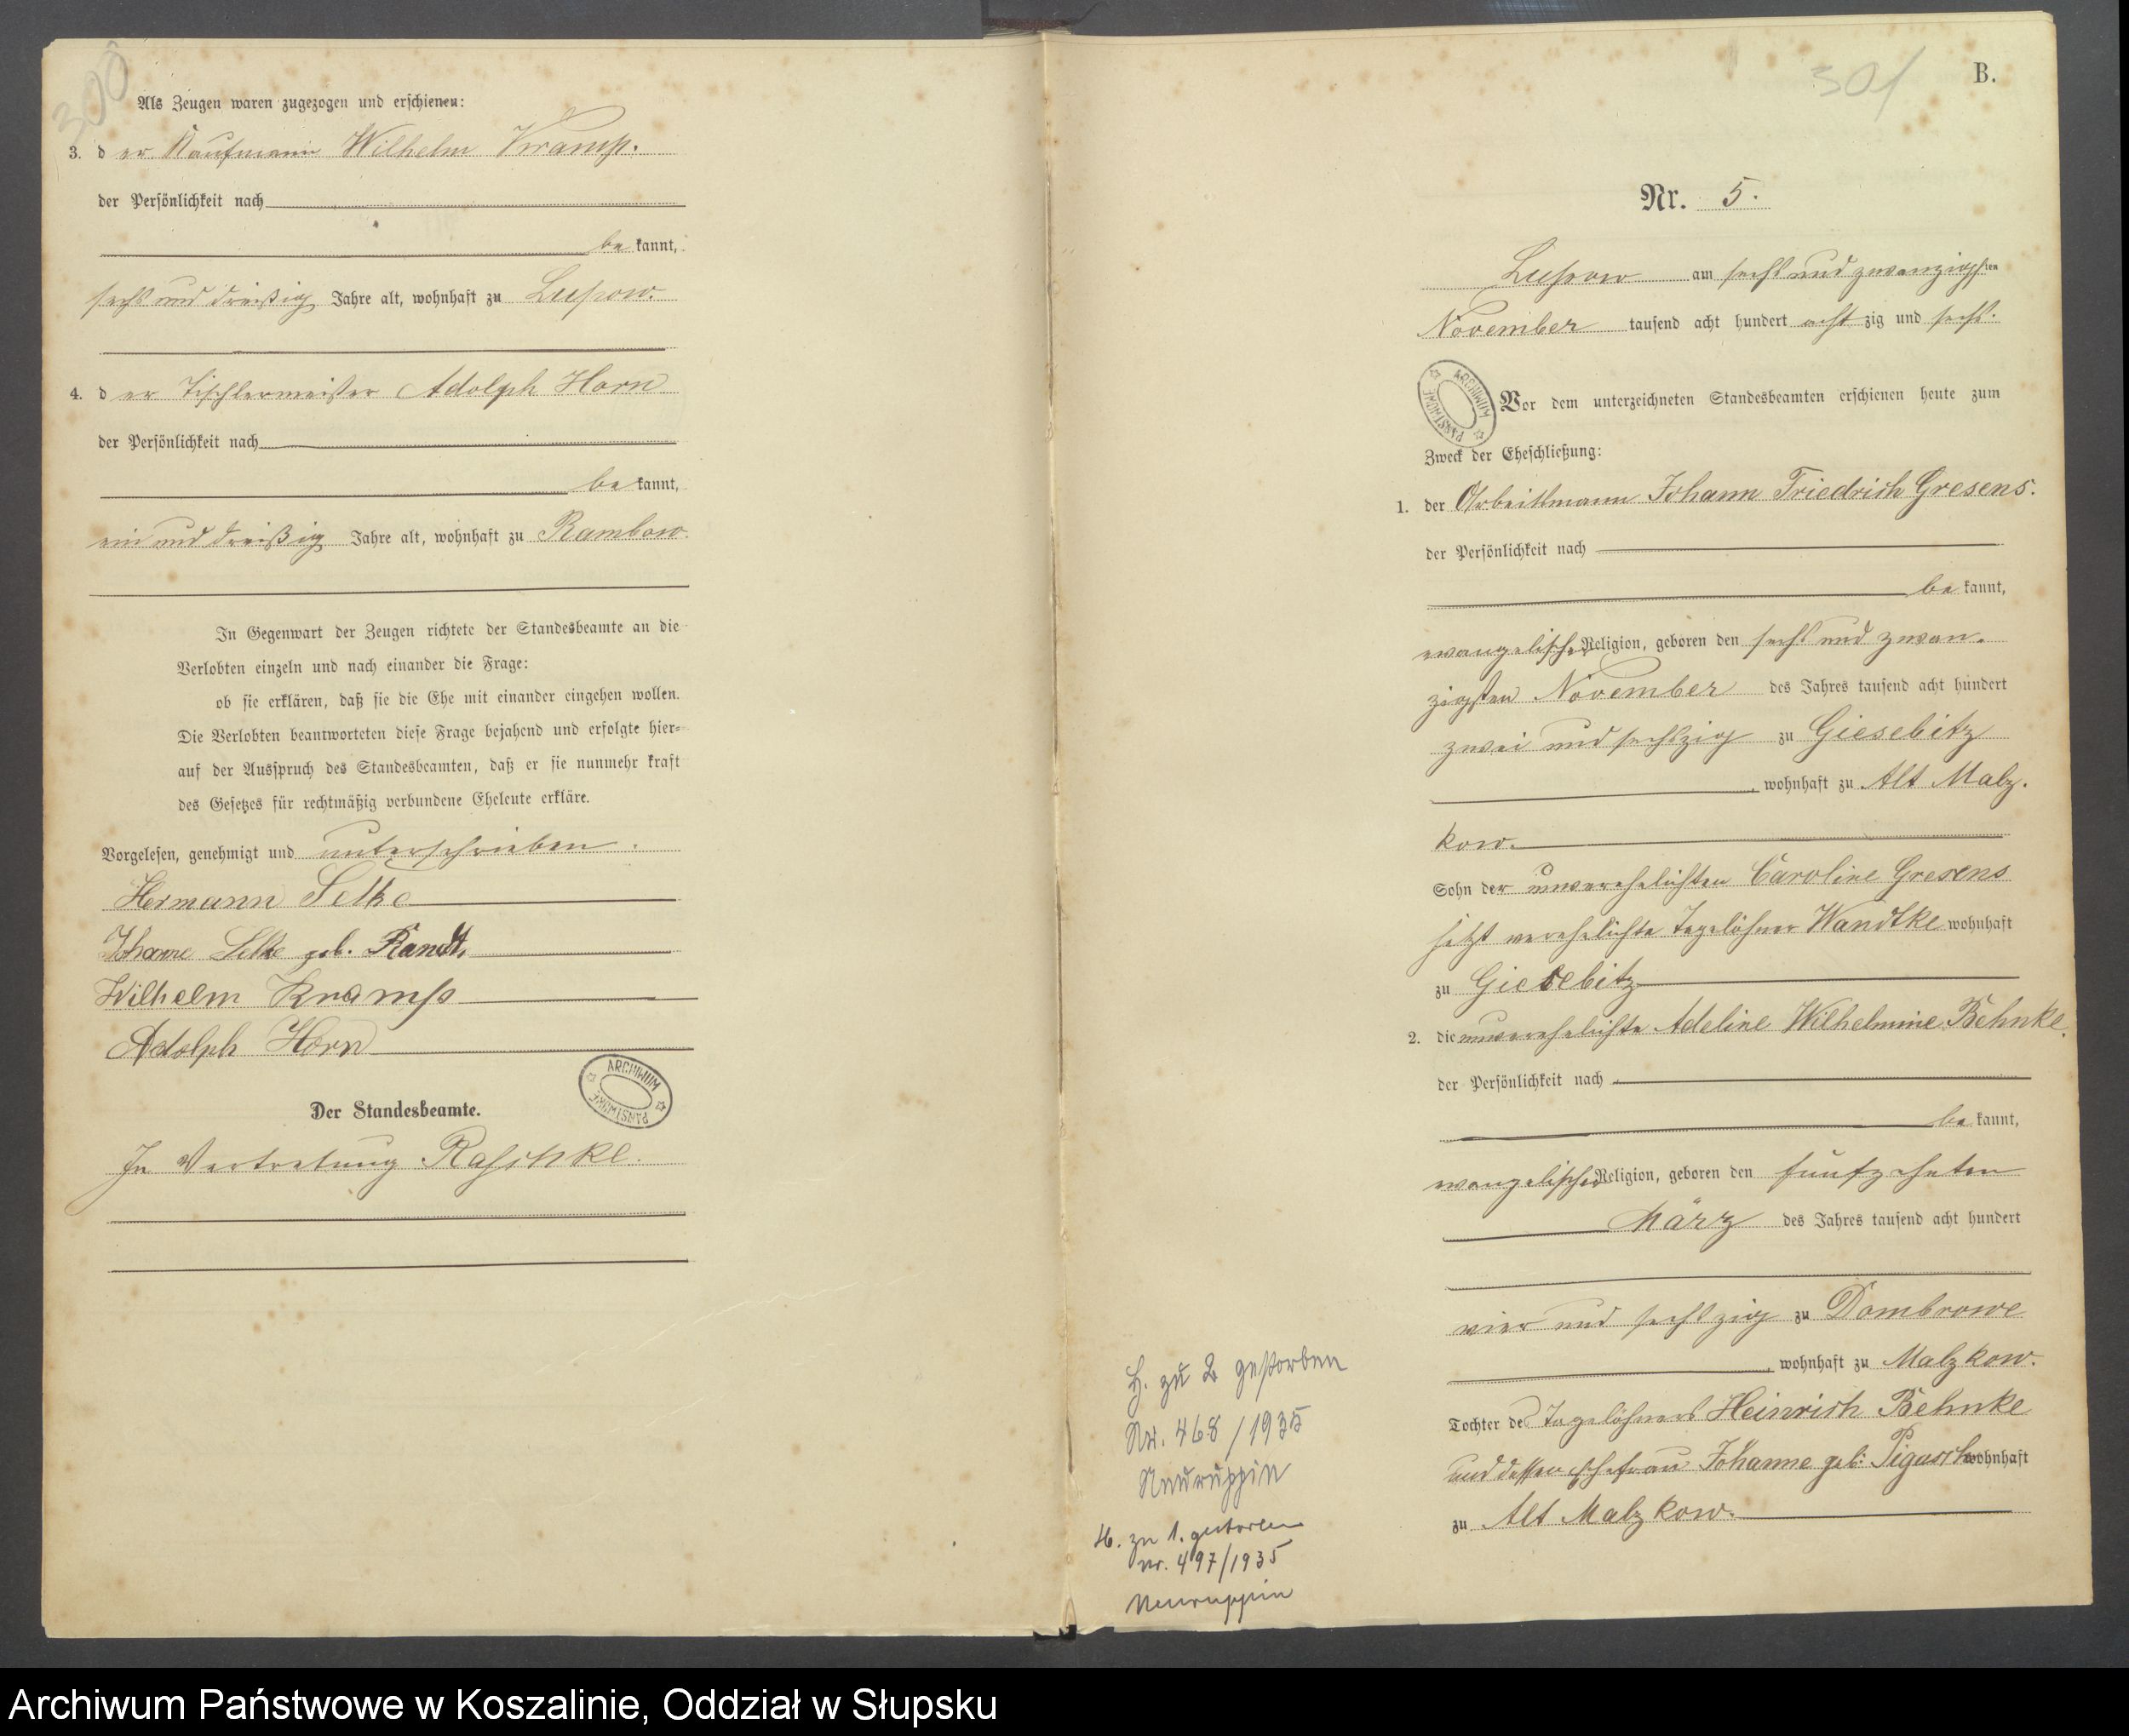 300
Als Zeugen waren zugezogen und erschienen:
3. der Kaufmann Wilhelm Kramp.
der Persönlichkeit nach
be kannt,
sechs und dreißig Jahre alt, wohnhaft zu Lupow.
4. der Tischlermeister Adolph Horn
der Persönlichkeit nach
be kannt,
ein und dreißig Jahre alt, wohnhaft zu Rambow.
In Gegenwart der Zeugen richtete der Standesbeamte an die
Verlobten einzeln und nach einander die Frage:
ob sie erklären, daß sie die Ehe mit einander eingehen wollen.
Die Verlobten beantworteten diese Frage bejahend und erfolgte hier=
auf der Ausspruch des Standesbeamten, daß er sie nunmehr kraft
des Gesetzes für rechtmäßig verbundene Eheleute erkläre.
Vorgelesen, genehmigt und unterschrieben.
Hermann Selke
Johanne Selke geb. Randt.
Wilhelm Kramp
Adolph Horn
ARCHIWUM PAŃSTWOWE
Der Standesbeamte.
In Vertretung Raschke.
301
B.
Nr. 5.
Lupow am sechs und zwanzigsten
November tausend acht hundert acht zig und sechs.
ARCHIWUM PAŃSTWOWE
Vor dem unterzeichneten Standesbeamten erschienen heute zum
Zweck der Eheschließung:
1. der Arbeitsmann Johann Friedrich Gresens.
der Persönlichkeit nach
be kannt,
evangelischer Religion, geboren den sechs und zwan-
zigsten November des Jahres tausend acht hundert
zwei und sechszig zu Giesebitz
, wohnhaft zu Alt Malz-
kow.
Sohn der unverehelichten Caroline Gresens
jetzt verehelichte Tagelöhner Wandtke wohnhaft
zu Giesebitz
2. die unverehelichte Adeline Wilhelmine Behnke.
der Persönlichkeit nach
be kannt,
evangelischer Religion, geboren den fünfzehnten
März des Jahres tausend acht hundert
vier und sechszig zu Dombrowe
, wohnhaft zu Malzkow.
Tochter des Tagelöhners Heinrich Behnke
und dessen Ehefrau Johanne geb: Pigorsch wohnhaft
zu Alt Malzkow.
H. zu 2 gestorben
Nr. 468/1935
Neuruppin
H. zu 1. gestorben
Nr. 497/1935
Neuruppin
Archiwum Państwowe w Koszalinie, Oddział w Słupsku